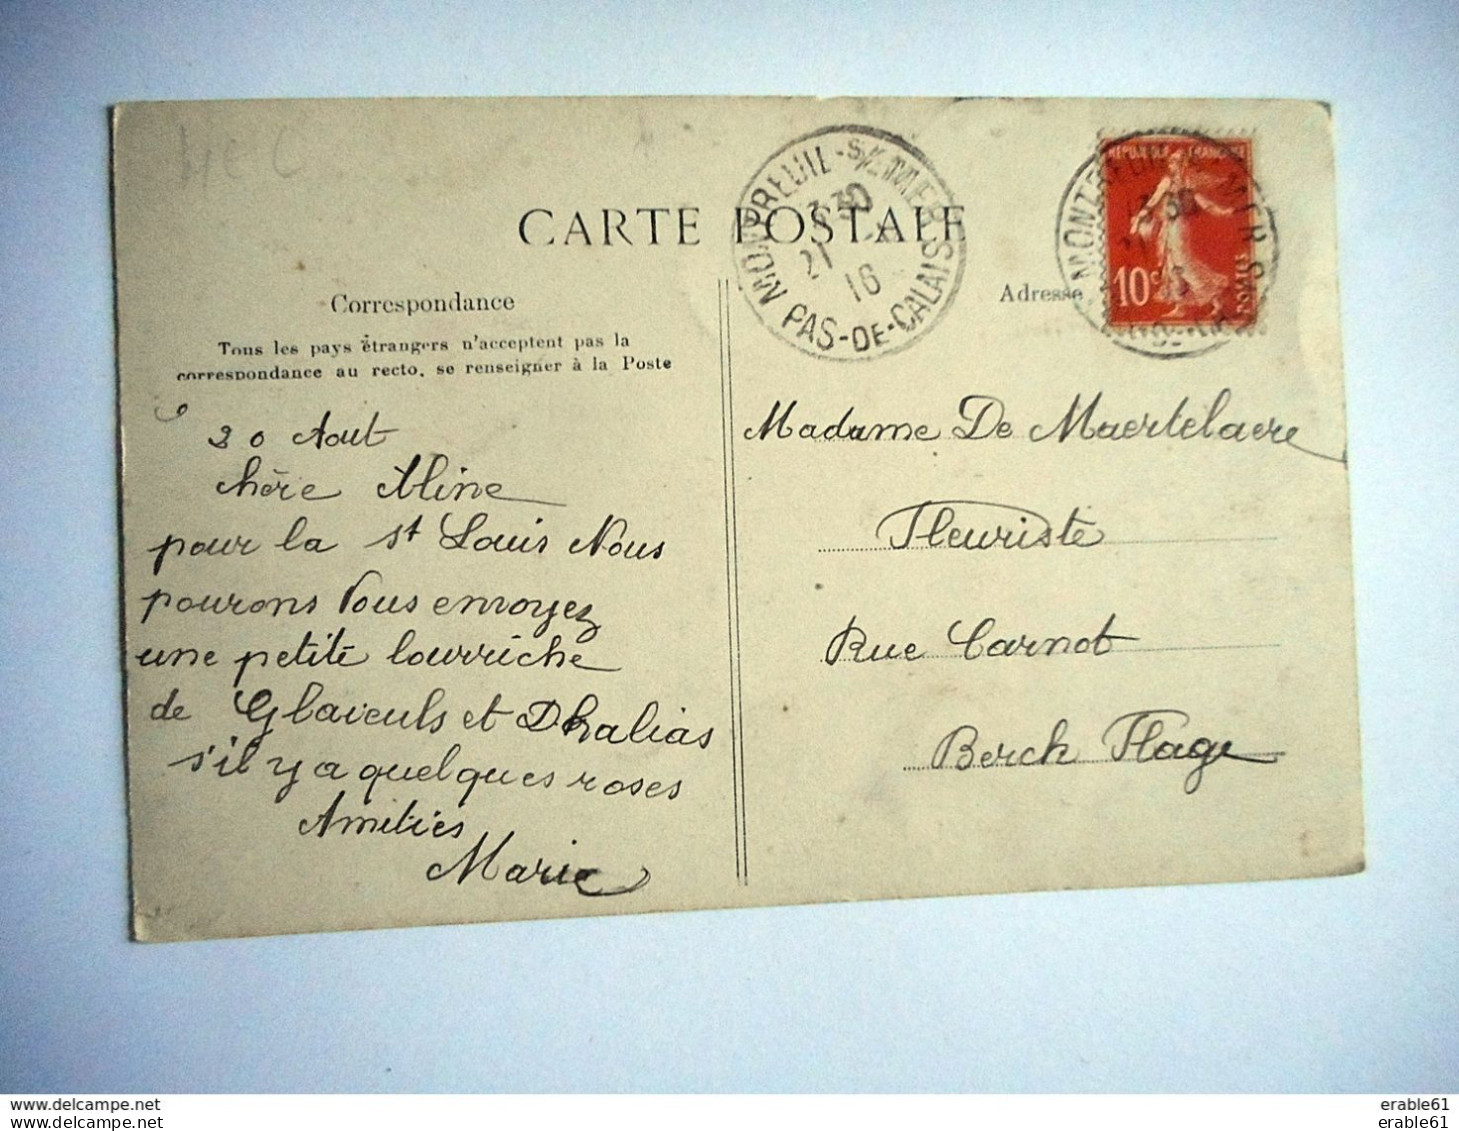 CARTE POSTALE
Correspondance
Tous les pays étrangers n'acceptent pas la
correspondance au recto, se renseigner à la Poste
Adresse
MONTREUIL-S/MER
13 30
21
16
PAS-DE-CALAIS
REPUBLIQUE FRANÇAISE
10c
POSTES
20 Aout
chère Aline
pour la St Louis Nous
pourons Vous envoyez
une petite bourriche
de Glaieuls et Dhalias
s'il y a quelques roses
Amitiés
Marie
Madame De Maertelaere
Fleuriste
Rue Carnot
Berck Plage
www.delcampe.net
erable61